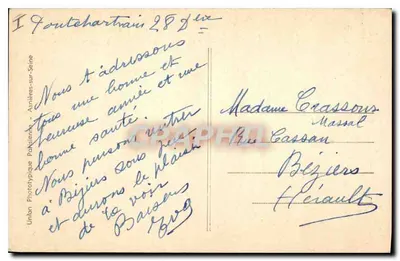 I Pontchartrain 28 Xbre
Nous t'adressons
tous une bonne et
heureuse année et une
bonne santé.
Nous pensons
à Béziers sous
et aurons le plaisir
de te voir
Baisers
Madame Crassous
Massal
Rue Cassan
Béziers
Hérault
Union Phototypique Parisienne, Asnières-sur-Seine
CPARAMA